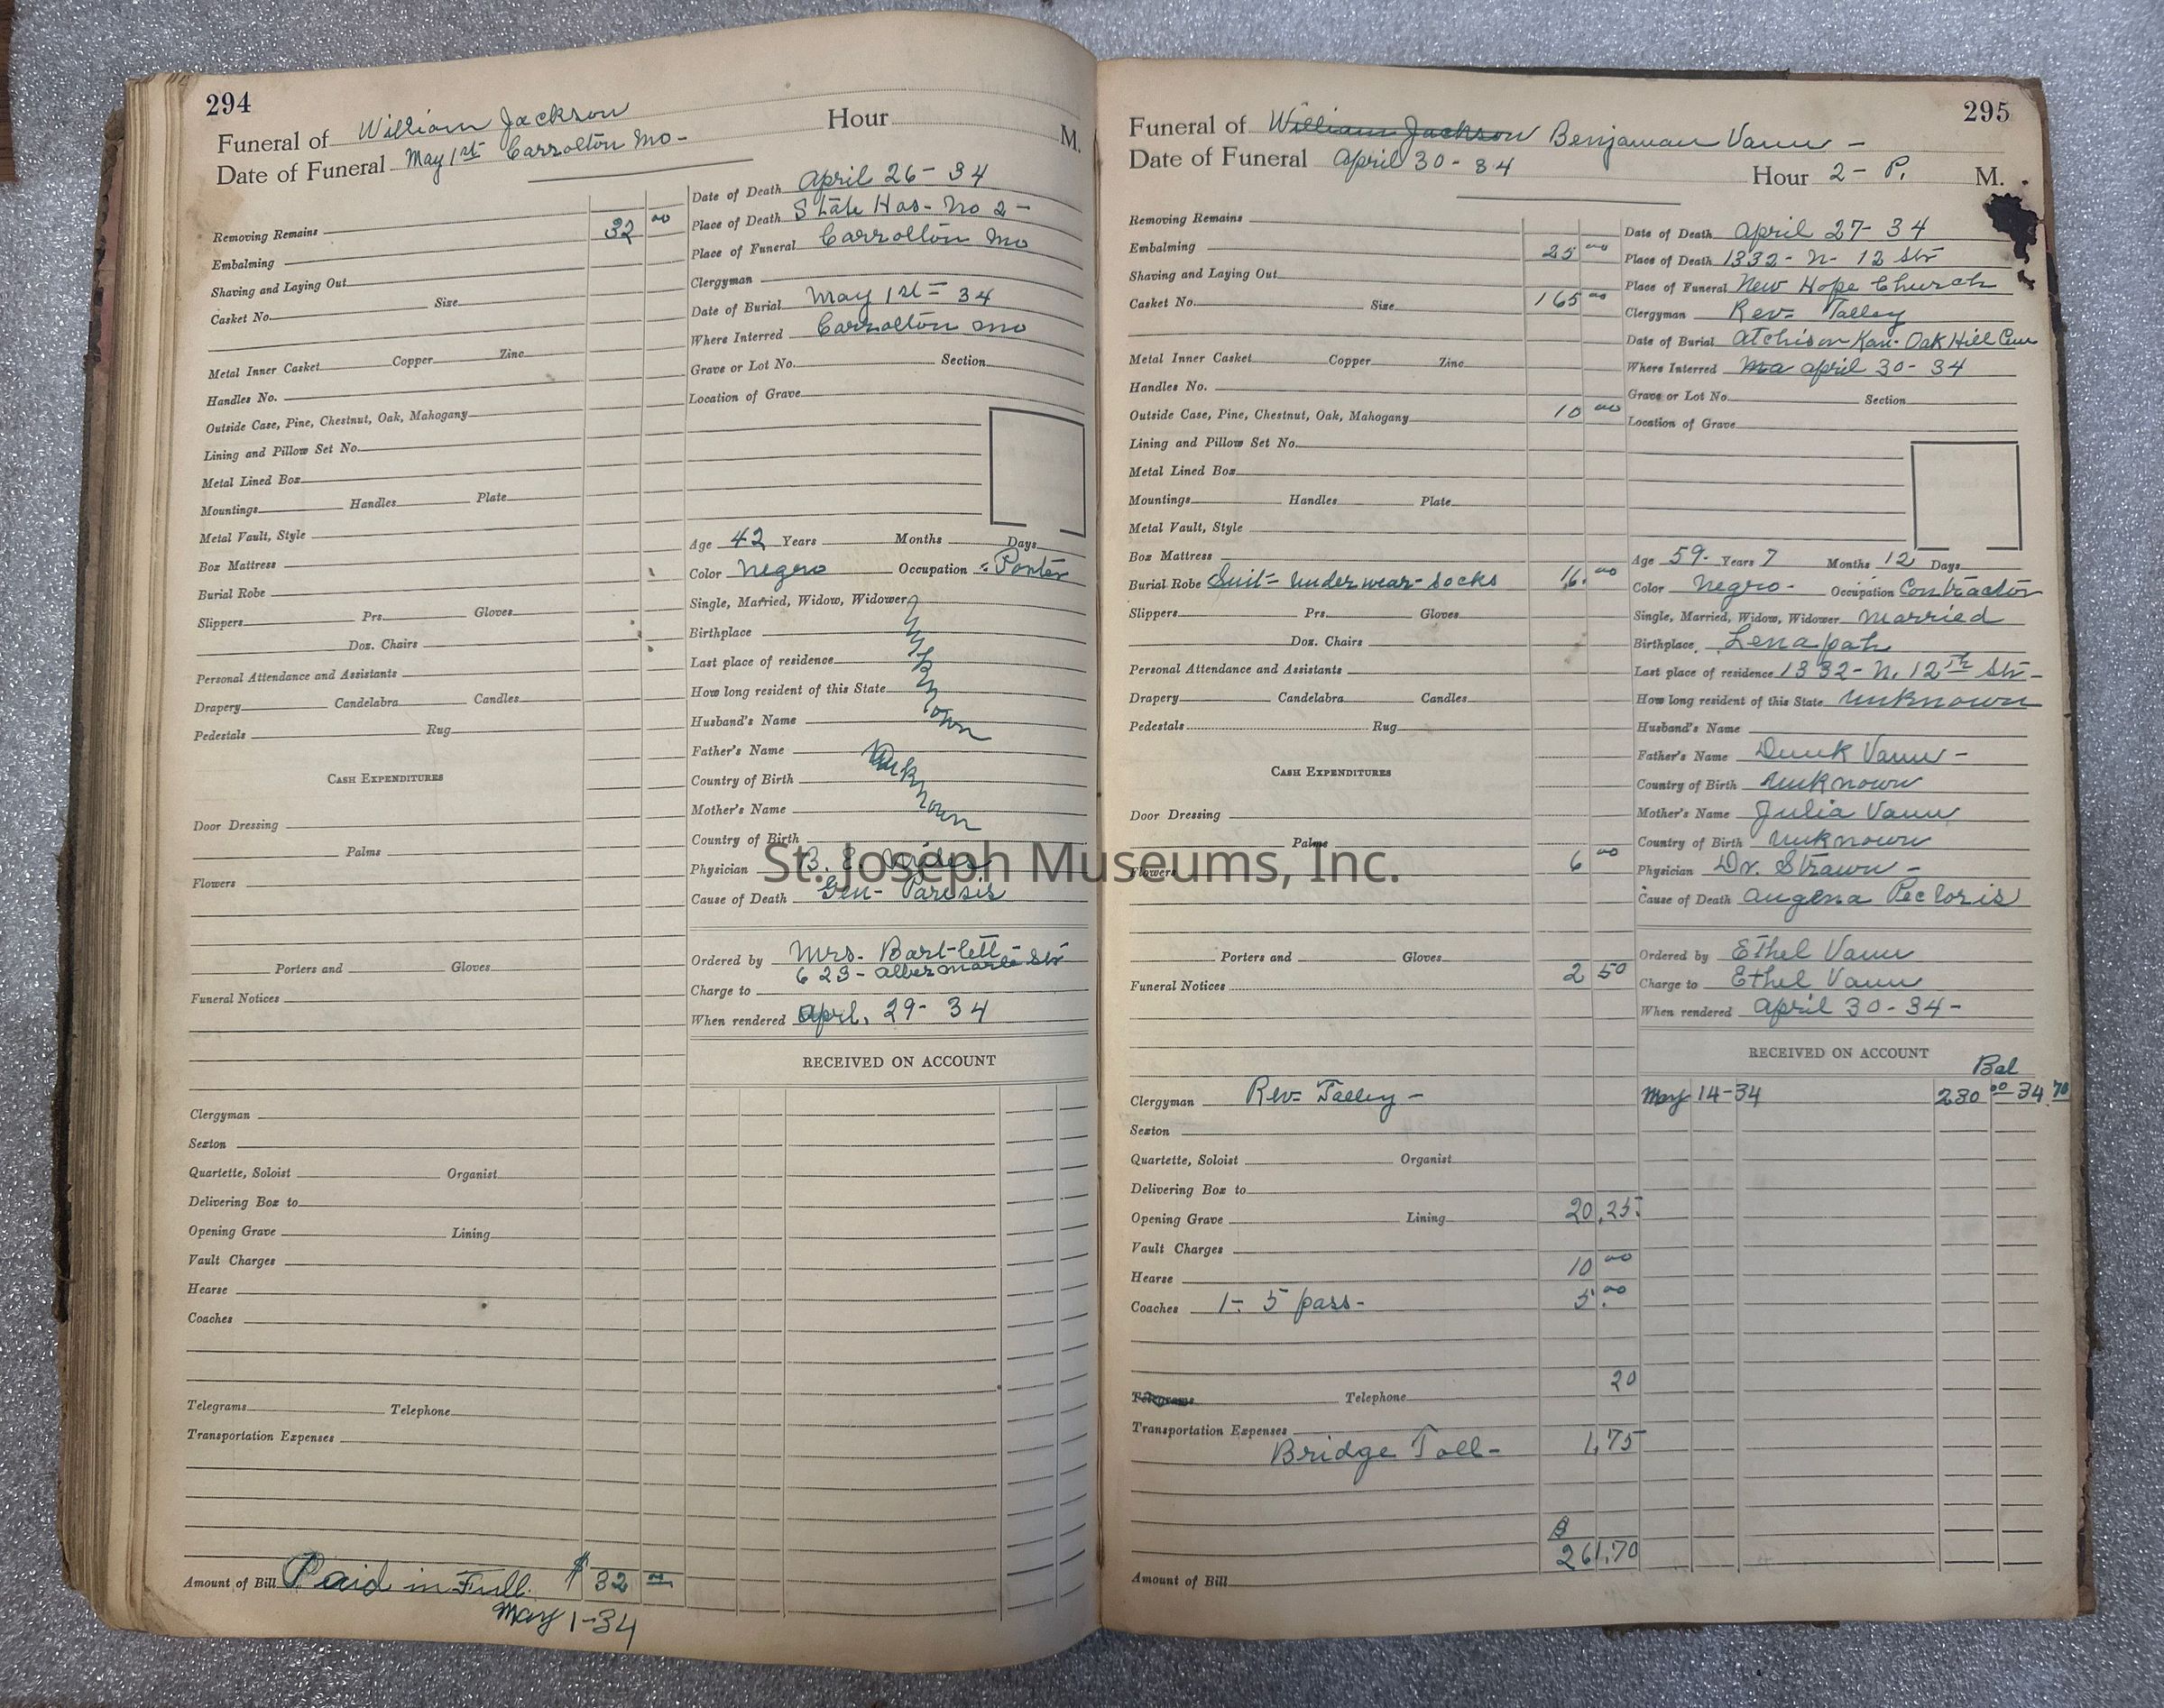 294
Funeral of William Jackson Hour M.
Date of Funeral May 1st Carrolton Mo-
Removing Remains 32 00
Embalming
Shaving and Laying Out
Casket No. Size
Metal Inner Casket Copper Zinc
Handles No.
Outside Case, Pine, Chestnut, Oak, Mahogany
Lining and Pillow Set No.
Metal Lined Box
Mountings Handles Plate
Metal Vault, Style
Box Mattress
Burial Robe
Slippers Prs. Gloves
Doz. Chairs
Personal Attendance and Assistants
Drapery Candelabra Candles
Pedestals Rug
CASH EXPENDITURES
Door Dressing
Palms
Flowers
Porters and Gloves
Funeral Notices
Clergyman
Sexton
Quartette, Soloist Organist
Delivering Box to
Opening Grave Lining
Vault Charges
Hearse
Coaches
Telegrams Telephone
Transportation Expenses
Amount of Bill Paid in Full. $ 32 00
May 1-34
Date of Death April 26- 34
Place of Death State Hos- No 2-
Place of Funeral Carrolton Mo
Clergyman
Date of Burial May 1st= 34
Where Interred Carrolton Mo
Grave or Lot No. Section
Location of Grave
Age 42 Years Months Days
Color Negro Occupation Porter
Single, Married, Widow, Widower
Birthplace
Last place of residence
How long resident of this State
Unknown
Husband's Name
Father's Name
Country of Birth
Unknown
Mother's Name
Country of Birth
Physician B. E. Miles
Cause of Death Gen- Paresis
Ordered by Mrs. Bartlett
623- Albermarle Str
Charge to
When rendered April. 29- 34
RECEIVED ON ACCOUNT
295
Funeral of William Jackson Benjaman Vann -
Date of Funeral April 30- 34
Hour 2- P. M.
Removing Remains
Embalming 25 00
Shaving and Laying Out
Casket No. Size 165 00
Metal Inner Casket Copper Zinc
Handles No.
Outside Case, Pine, Chestnut, Oak, Mahogany 10 00
Lining and Pillow Set No.
Metal Lined Box
Mountings Handles Plate
Metal Vault, Style
Box Mattress
Burial Robe Suit= Underwear- Socks 16.00
Slippers Prs. Gloves
Doz. Chairs
Personal Attendance and Assistants
Drapery Candelabra Candles
Pedestals Rug
CASH EXPENDITURES
Door Dressing
Palms
Flowers 6 00
Porters and Gloves
Funeral Notices 2 50
Clergyman Rev= Talley -
Sexton
Quartette, Soloist Organist
Delivering Box to
Opening Grave Lining 20.25
Vault Charges
Hearse 10 00
Coaches 1- 5 pass- 5.00
Telegrams Telephone 20
Transportation Expenses
Bridge Toll- 1.75
$
261.70
Amount of Bill
Date of Death April 27- 34
Place of Death 1332- N- 12 Str
Place of Funeral New Hope Church
Clergyman Rev= Talley
Date of Burial Atchison Kan- Oak Hill Cem
Where Interred April 30- 34
Grave or Lot No. Section
Location of Grave
Age 59- Years 7 Months 12 Days
Color Negro- Occupation Contractor
Single, Married, Widow, Widower Married
Birthplace Lenapah
Last place of residence 1332- N. 12th Str-
How long resident of this State Unknown
Husband's Name
Father's Name Dunk Vann-
Country of Birth Unknown
Mother's Name Julia Vann
Country of Birth Unknown
Physician Dr. Strawn-
Cause of Death Augena Pectoris
Ordered by Ethel Vann
Charge to Ethel Vann
When rendered April 30-34-
RECEIVED ON ACCOUNT
Bal
May 14-34 230 00 34.70
St. Joseph Museums, Inc.